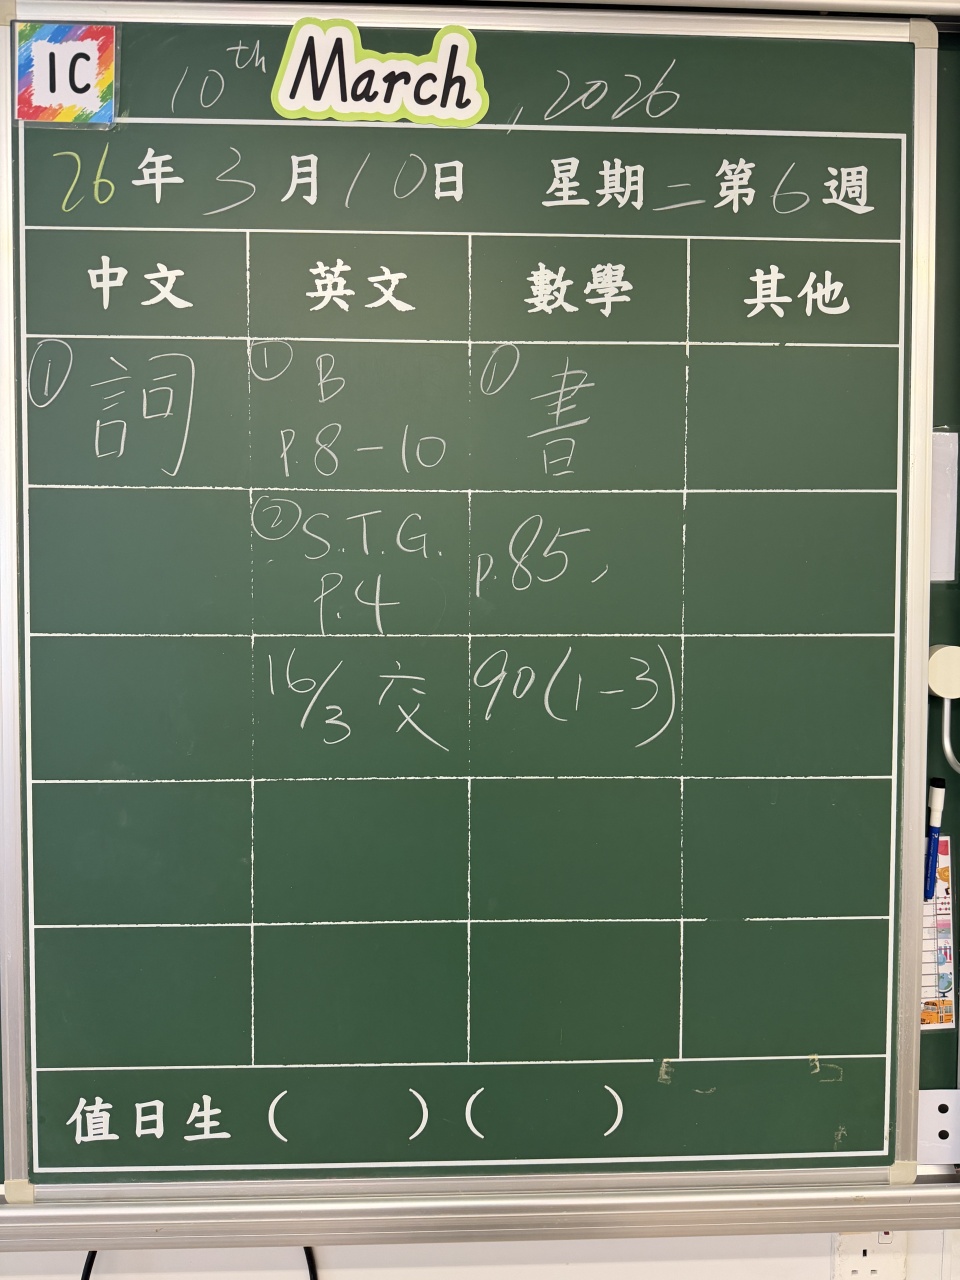 1C
10th March, 2026
26年3月10日 星期二第6週
中文 英文 數學 其他
① 詞
① B
P.8-10
② S.T.G.
P.4
16/3 交
① 書
p.85,
90(1-3)
值日生( )( )